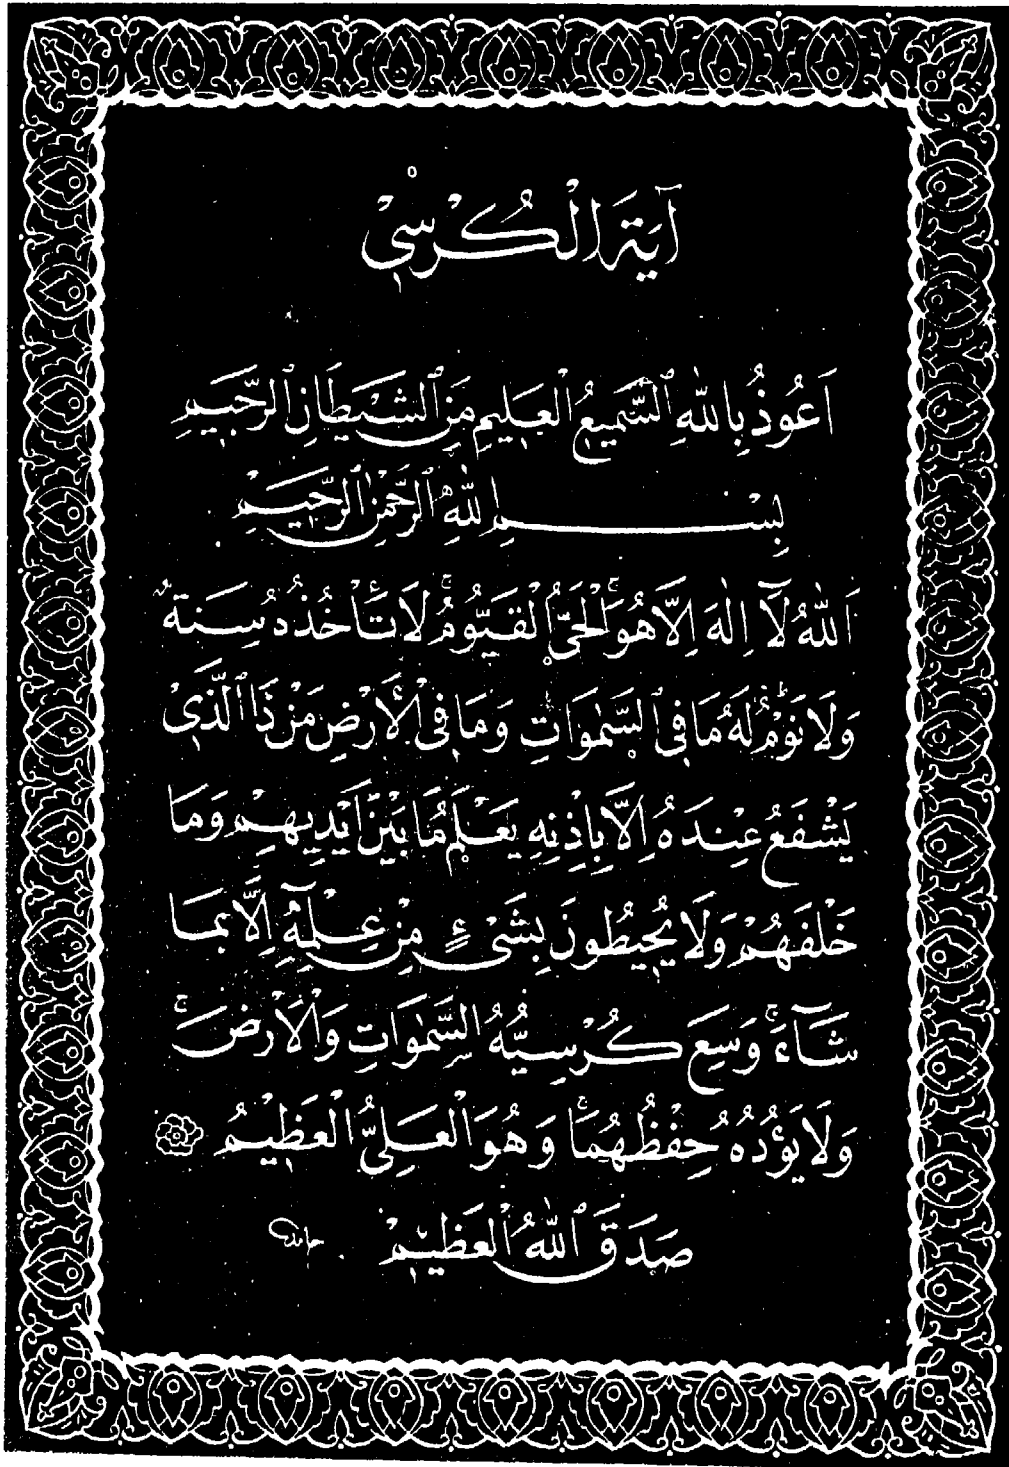 آيَةَ الْكُرْسِيْ
اَعُوذُ بِاللّٰهِ السَّمِيعُ الْعَلِيمِ مِنَ الشَّيْطَانِ الرَّجِيمِ
بِسْمِ اللّٰهِ الرَّحْمٰنِ الرَّحِيمِ
اَللّٰهُ لَآ اِلٰهَ اِلَّا هُوَ الْحَيُّ الْقَيُّومُ لَا تَأْخُذُهُ سِنَةٌ
وَلَا نَوْمٌ لَهُ مَا فِي السَّمٰوَاتِ وَمَا فِي الْأَرْضِ مَنْ ذَا الَّذِي
يَشْفَعُ عِنْدَهُ اِلَّا بِاِذْنِهِ يَعْلَمُ مَا بَيْنَ اَيْدِيهِمْ وَمَا
خَلْفَهُمْ وَلَا يُحِيطُونَ بِشَيْءٍ مِنْ عِلْمِهِٓ اِلَّا بِمَا
شَآءَ وَسِعَ كُرْسِيُّهُ السَّمٰوَاتِ وَالْاَرْضَ
وَلَا يَؤُدُهُ حِفْظُهُمَا وَهُوَ الْعَلِيُّ الْعَظِيمُ
صَدَقَ اللّٰهُ الْعَظِيمْ
حامد